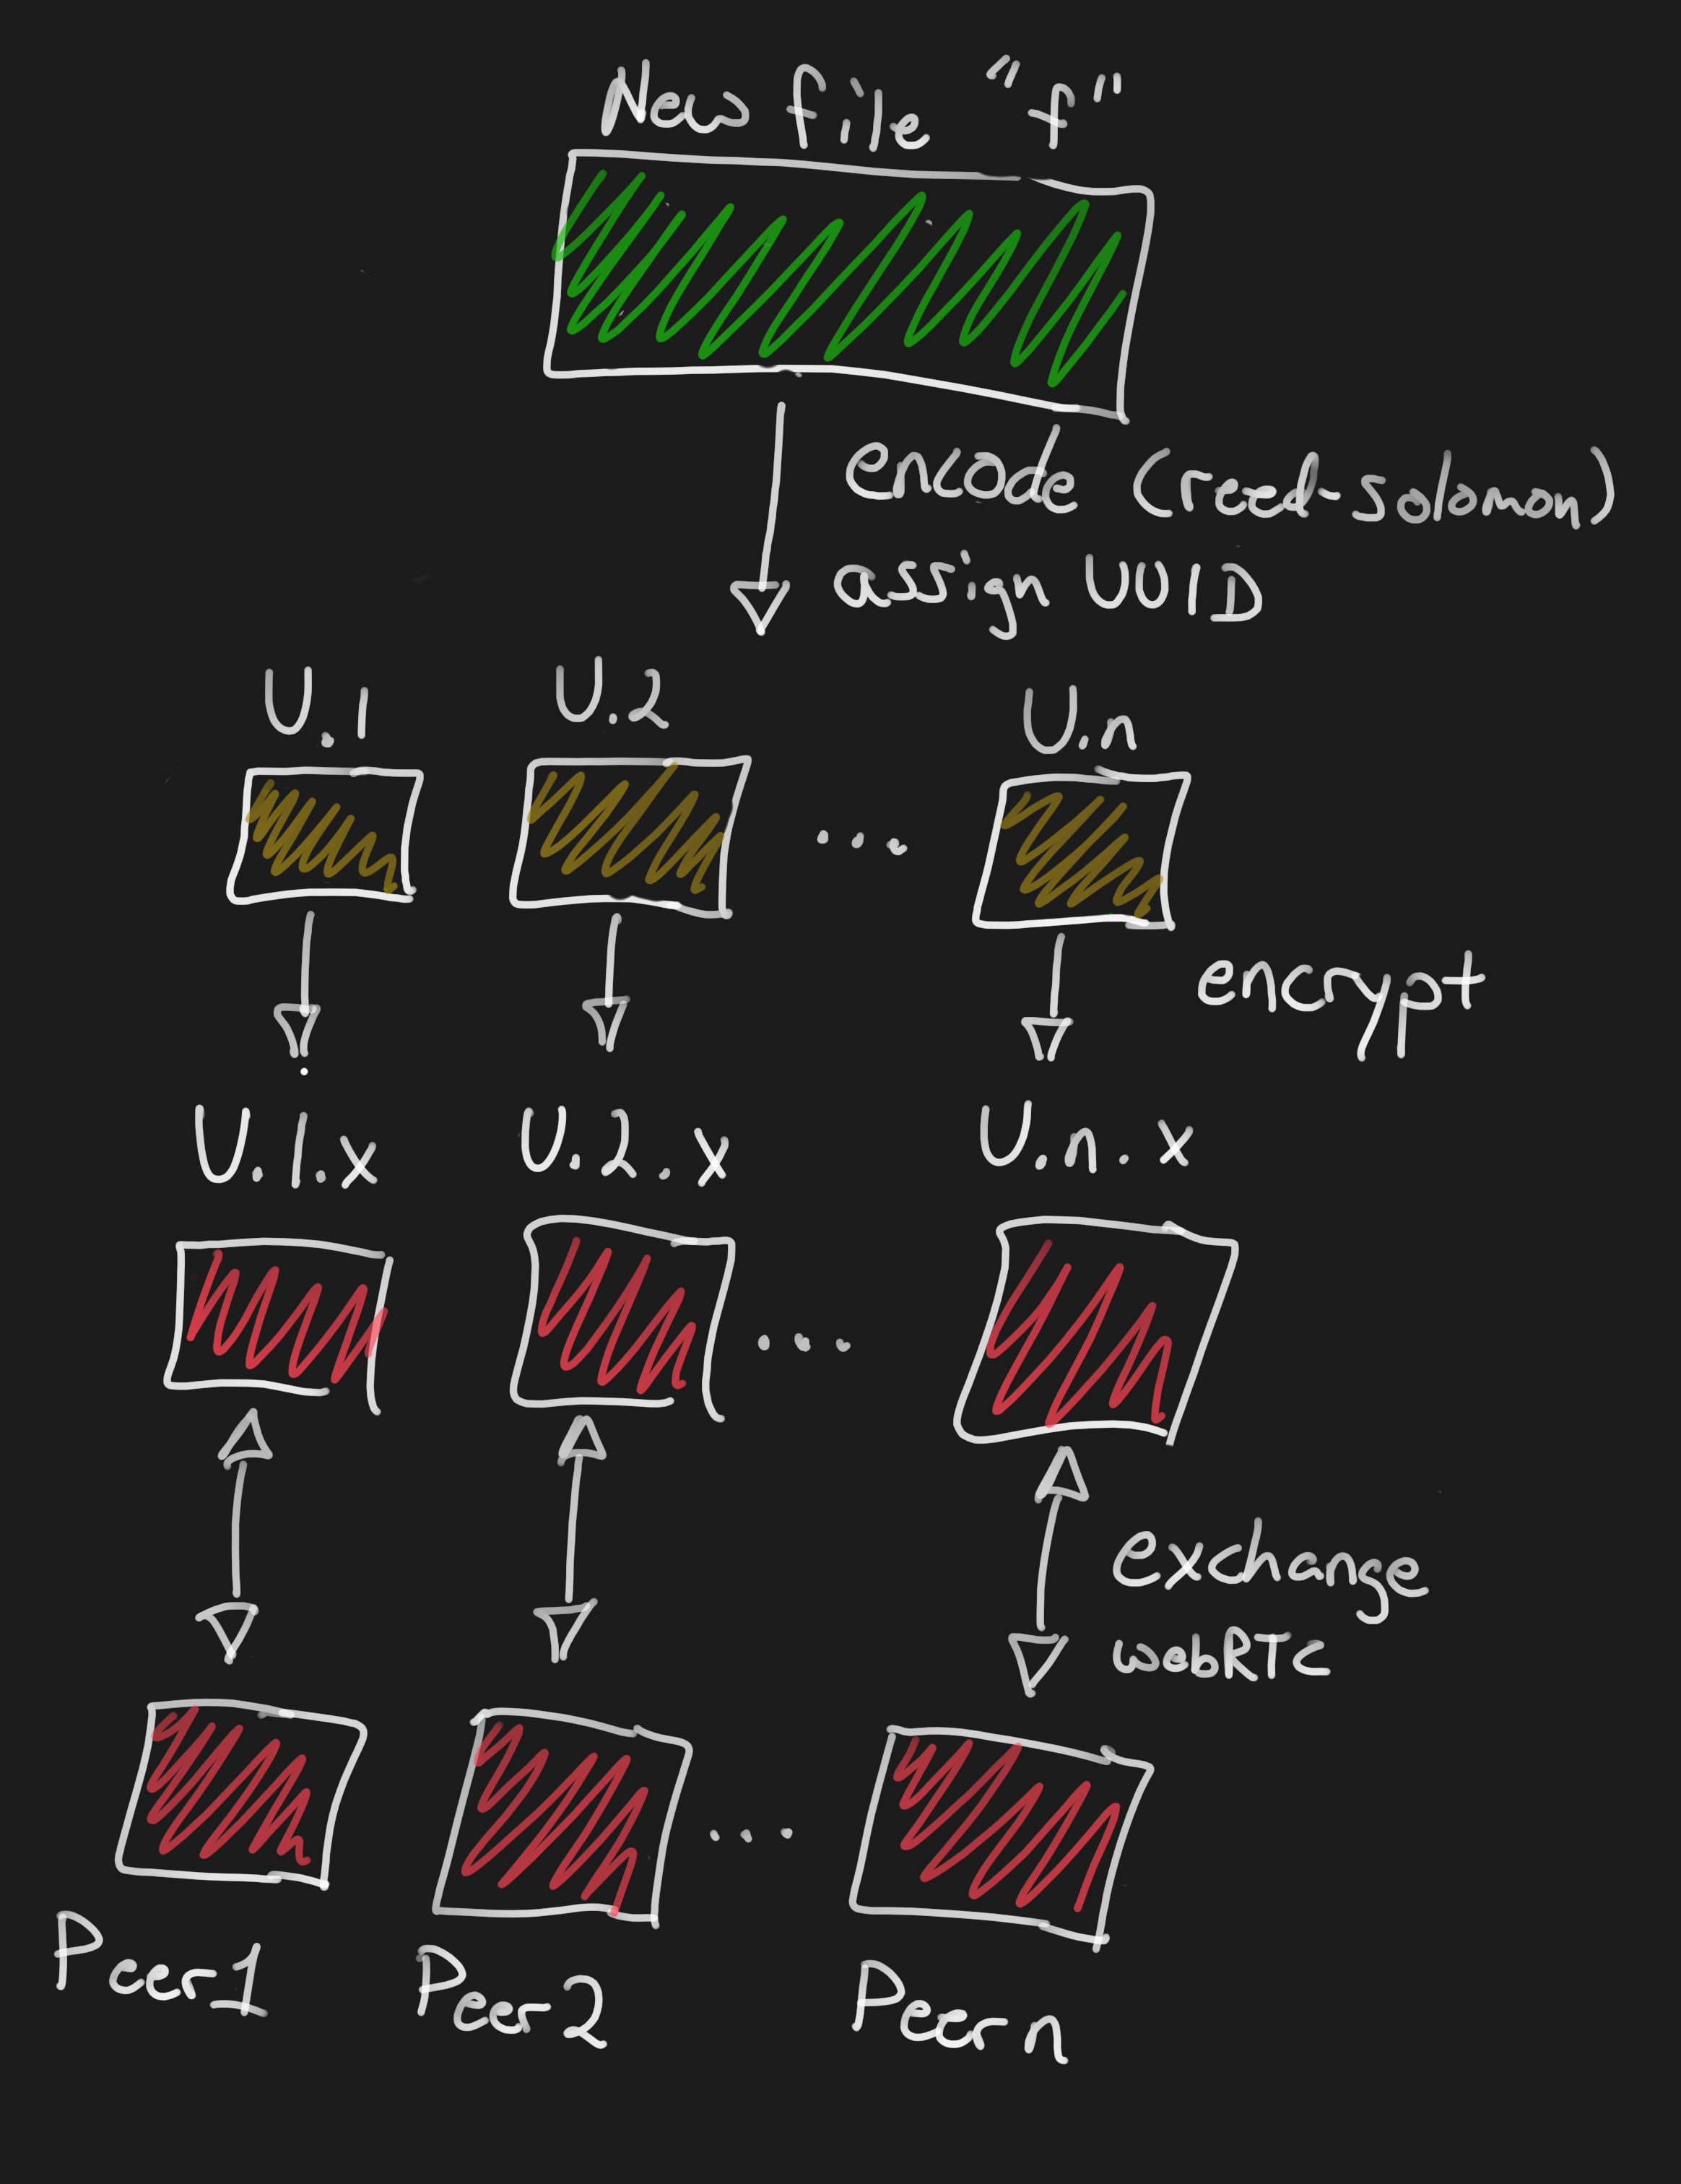 New file "f"
encode (reed-solomon)
assign UUID
U.1 U.2 ... U.n
encrypt
U.1.x U.2.x U.n.x
....
exchange
webRTC
...
Peer 1 Peer 2 Peer n